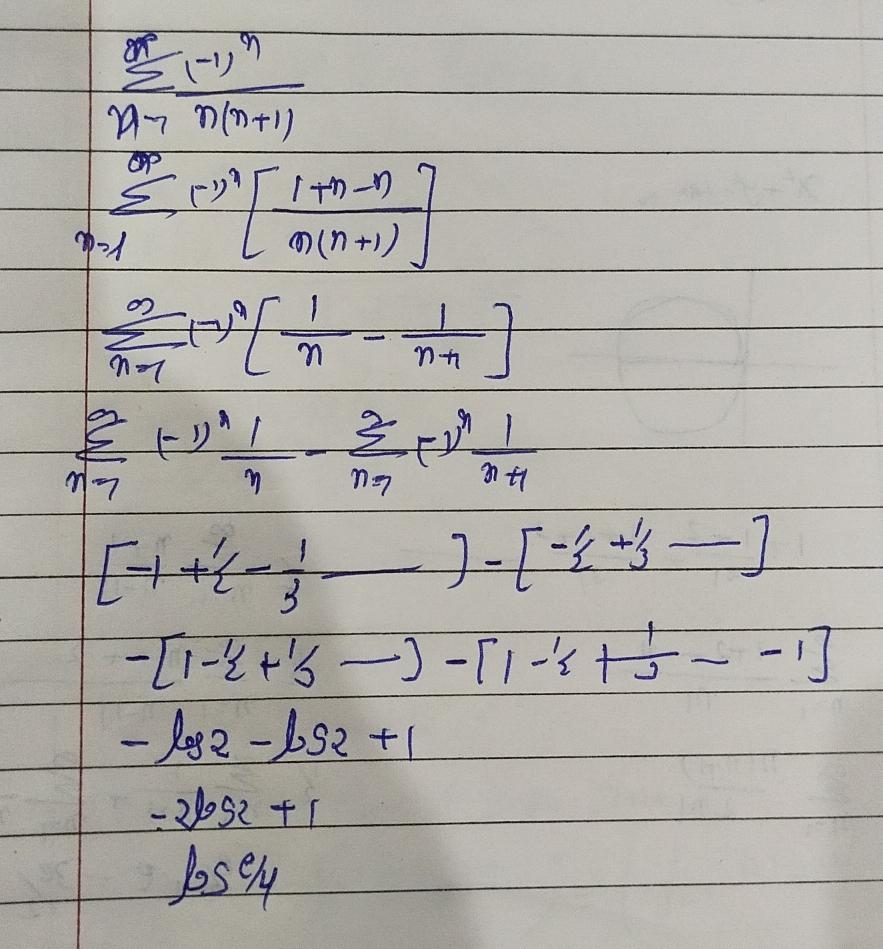 ∞ Σ n=1 (-1)^n / n(n+1)
∞ Σ n=1 (-1)^n [ 1+n-n / n(n+1) ]
∞ Σ n=1 (-1)^n [ 1/n - 1/n+1 ]
∞ Σ n=1 (-1)^n 1/n - ∞ Σ n=1 (-1)^n 1/n+1
[-1 + 1/2 - 1/3 —— ] - [-1/2 + 1/3 — ]
-[1 - 1/2 + 1/3 — ] - [1 - 1/2 + 1/3 - - 1]
- log 2 - log 2 + 1
- 2 log 2 + 1
log e/4